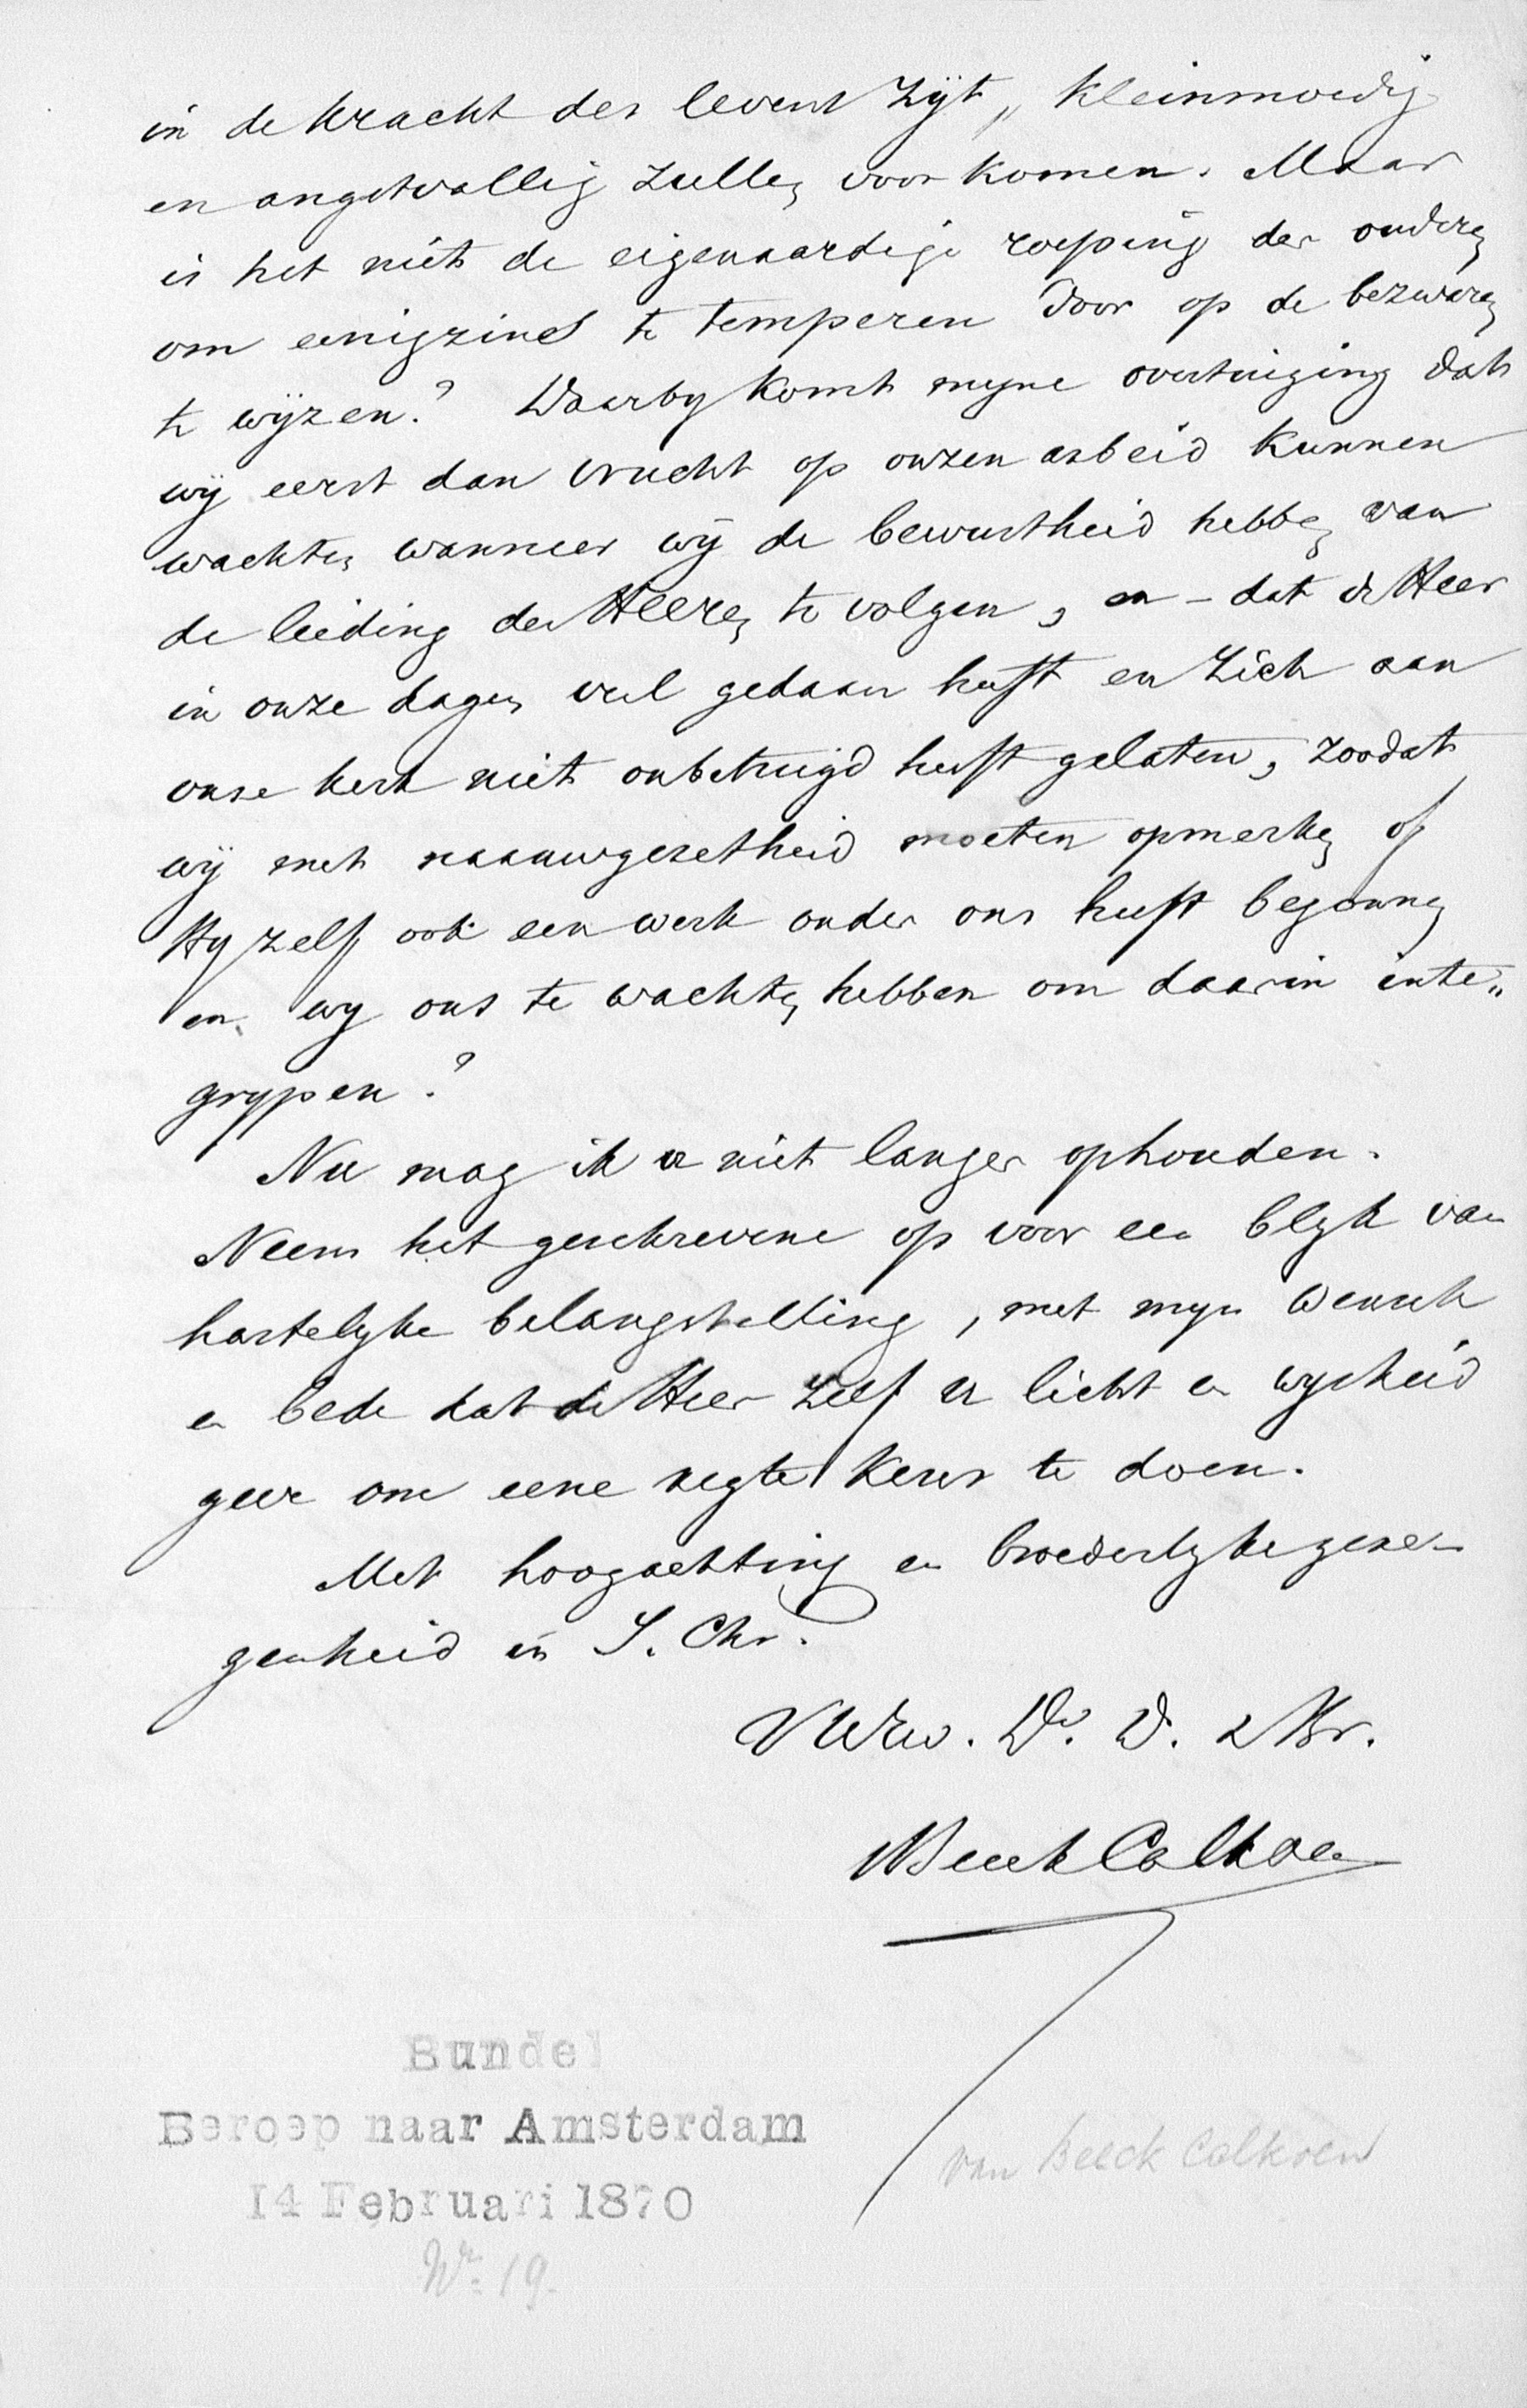 in de kracht des levens zijt, kleinmoedig
en angstvallig zullen voorkomen. Maar
is het niet de eigenaardige roeping der ouderen
om eenigzins te temperen door op de bezwaren
te wijzen? Daarby komt myne overtuiging dat
wij eerst dan vrucht op onzen arbeid kunnen
wachten wanneer wij de bewustheid hebben van
de leiding des Heeren te volgen, en - dat de Heer
in onze dagen veel gedaan heeft en zich aan
onze kerk niet onbetuigd heeft gelaten, zoodat
wij met naauwgezetheid moeten opmerken of
Hy zelf ook een werk onder ons heeft begonnen
en wy ons te wachten hebben om daarin inte„
grypen?
Nu mag ik u niet langer ophouden.
Neem het geschrevene op voor een blyk van
hartelyke belangstelling, met myn wensch
en bede dat de Heer zelf u licht en wysheid
geve om eene regte keus te doen.
Met hoogachting en broederlyke gene-
genheid in J. Chr.
UWEw. Dv. D. & Br.
v Beeck Calkoen
Bundel
Beroep naar Amsterdam
14 Februari 1870
van Beeck Calkoen
Nr. 19.